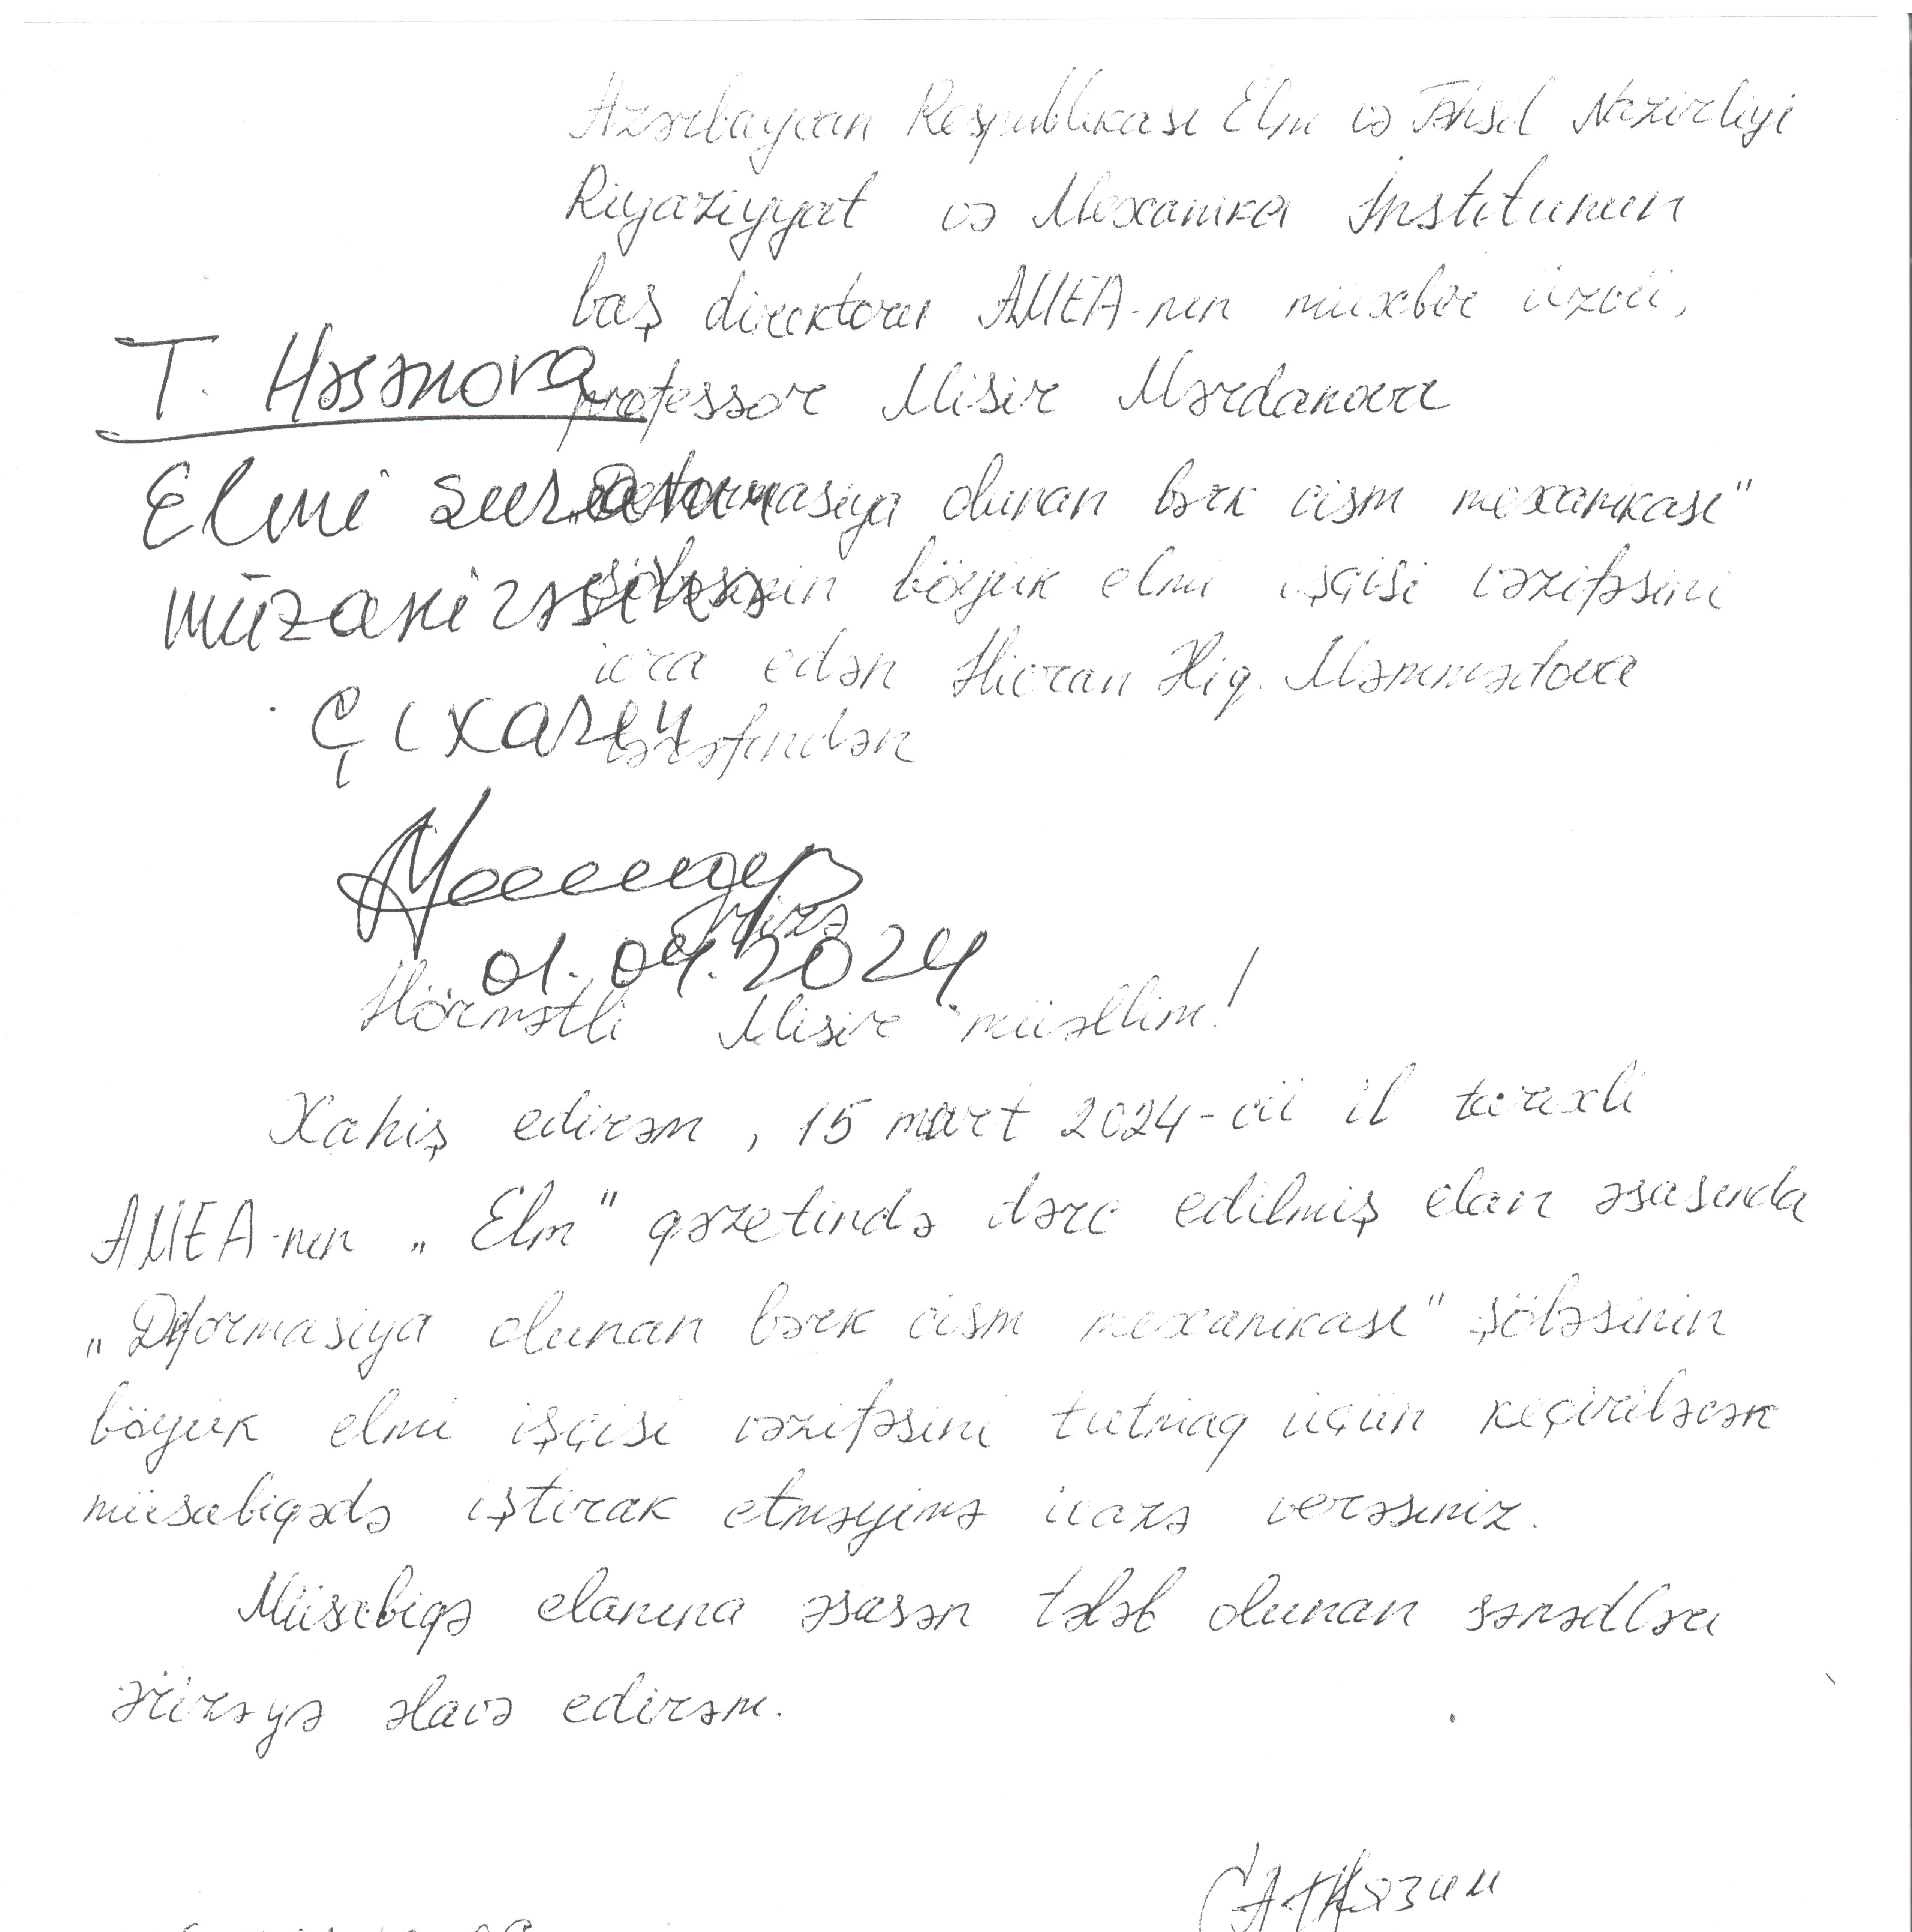 Azərbaycan Respublikası Elm və Təhsil Nazirliyi
Riyaziyyat və Mexanika İnstitunun
baş direktoru AMEA-nın müxbir üzvü,
professor Misir Mərdanova
T. Həsənova
"Deformasiya olunan bərk cism mexanikası"
Elmi şuranın
şöbəsinin böyük elmi işçisi vəzifəsini
müzakirəsinə
icra edən Hicran Hiq. Məmmədova
çıxarın
tərəfindən
Ərizə
01.04.2024
Hörmətli Misir müəllim!
Xahiş edirəm, 15 mart 2024-cü il tarixli
AMEA-nın „Elm" qəzetində dərc edilmiş elan əsasında
„Deformasiya olunan bərk cism mexanikası" şöbəsinin
böyük elmi işçisi vəzifəsini tutmaq üçün keçiriləcək
müsabiqədə iştirak etməyimə icazə verəsiniz.
Müsabiqə elanına əsasən tələb olunan sənədləri
ərizəyə əlavə edirəm.